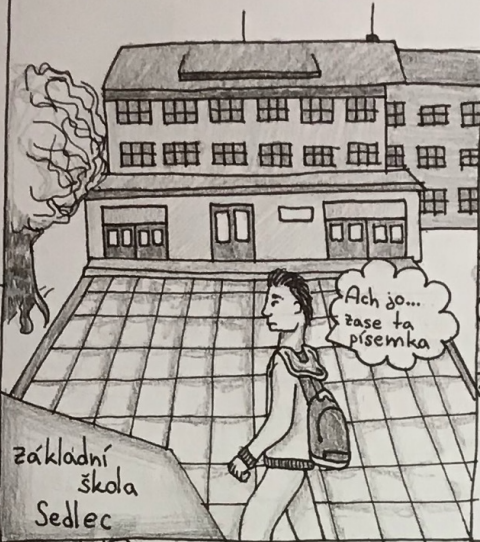 Ach jo...
zase ta
písemka
základní
škola
Sedlec